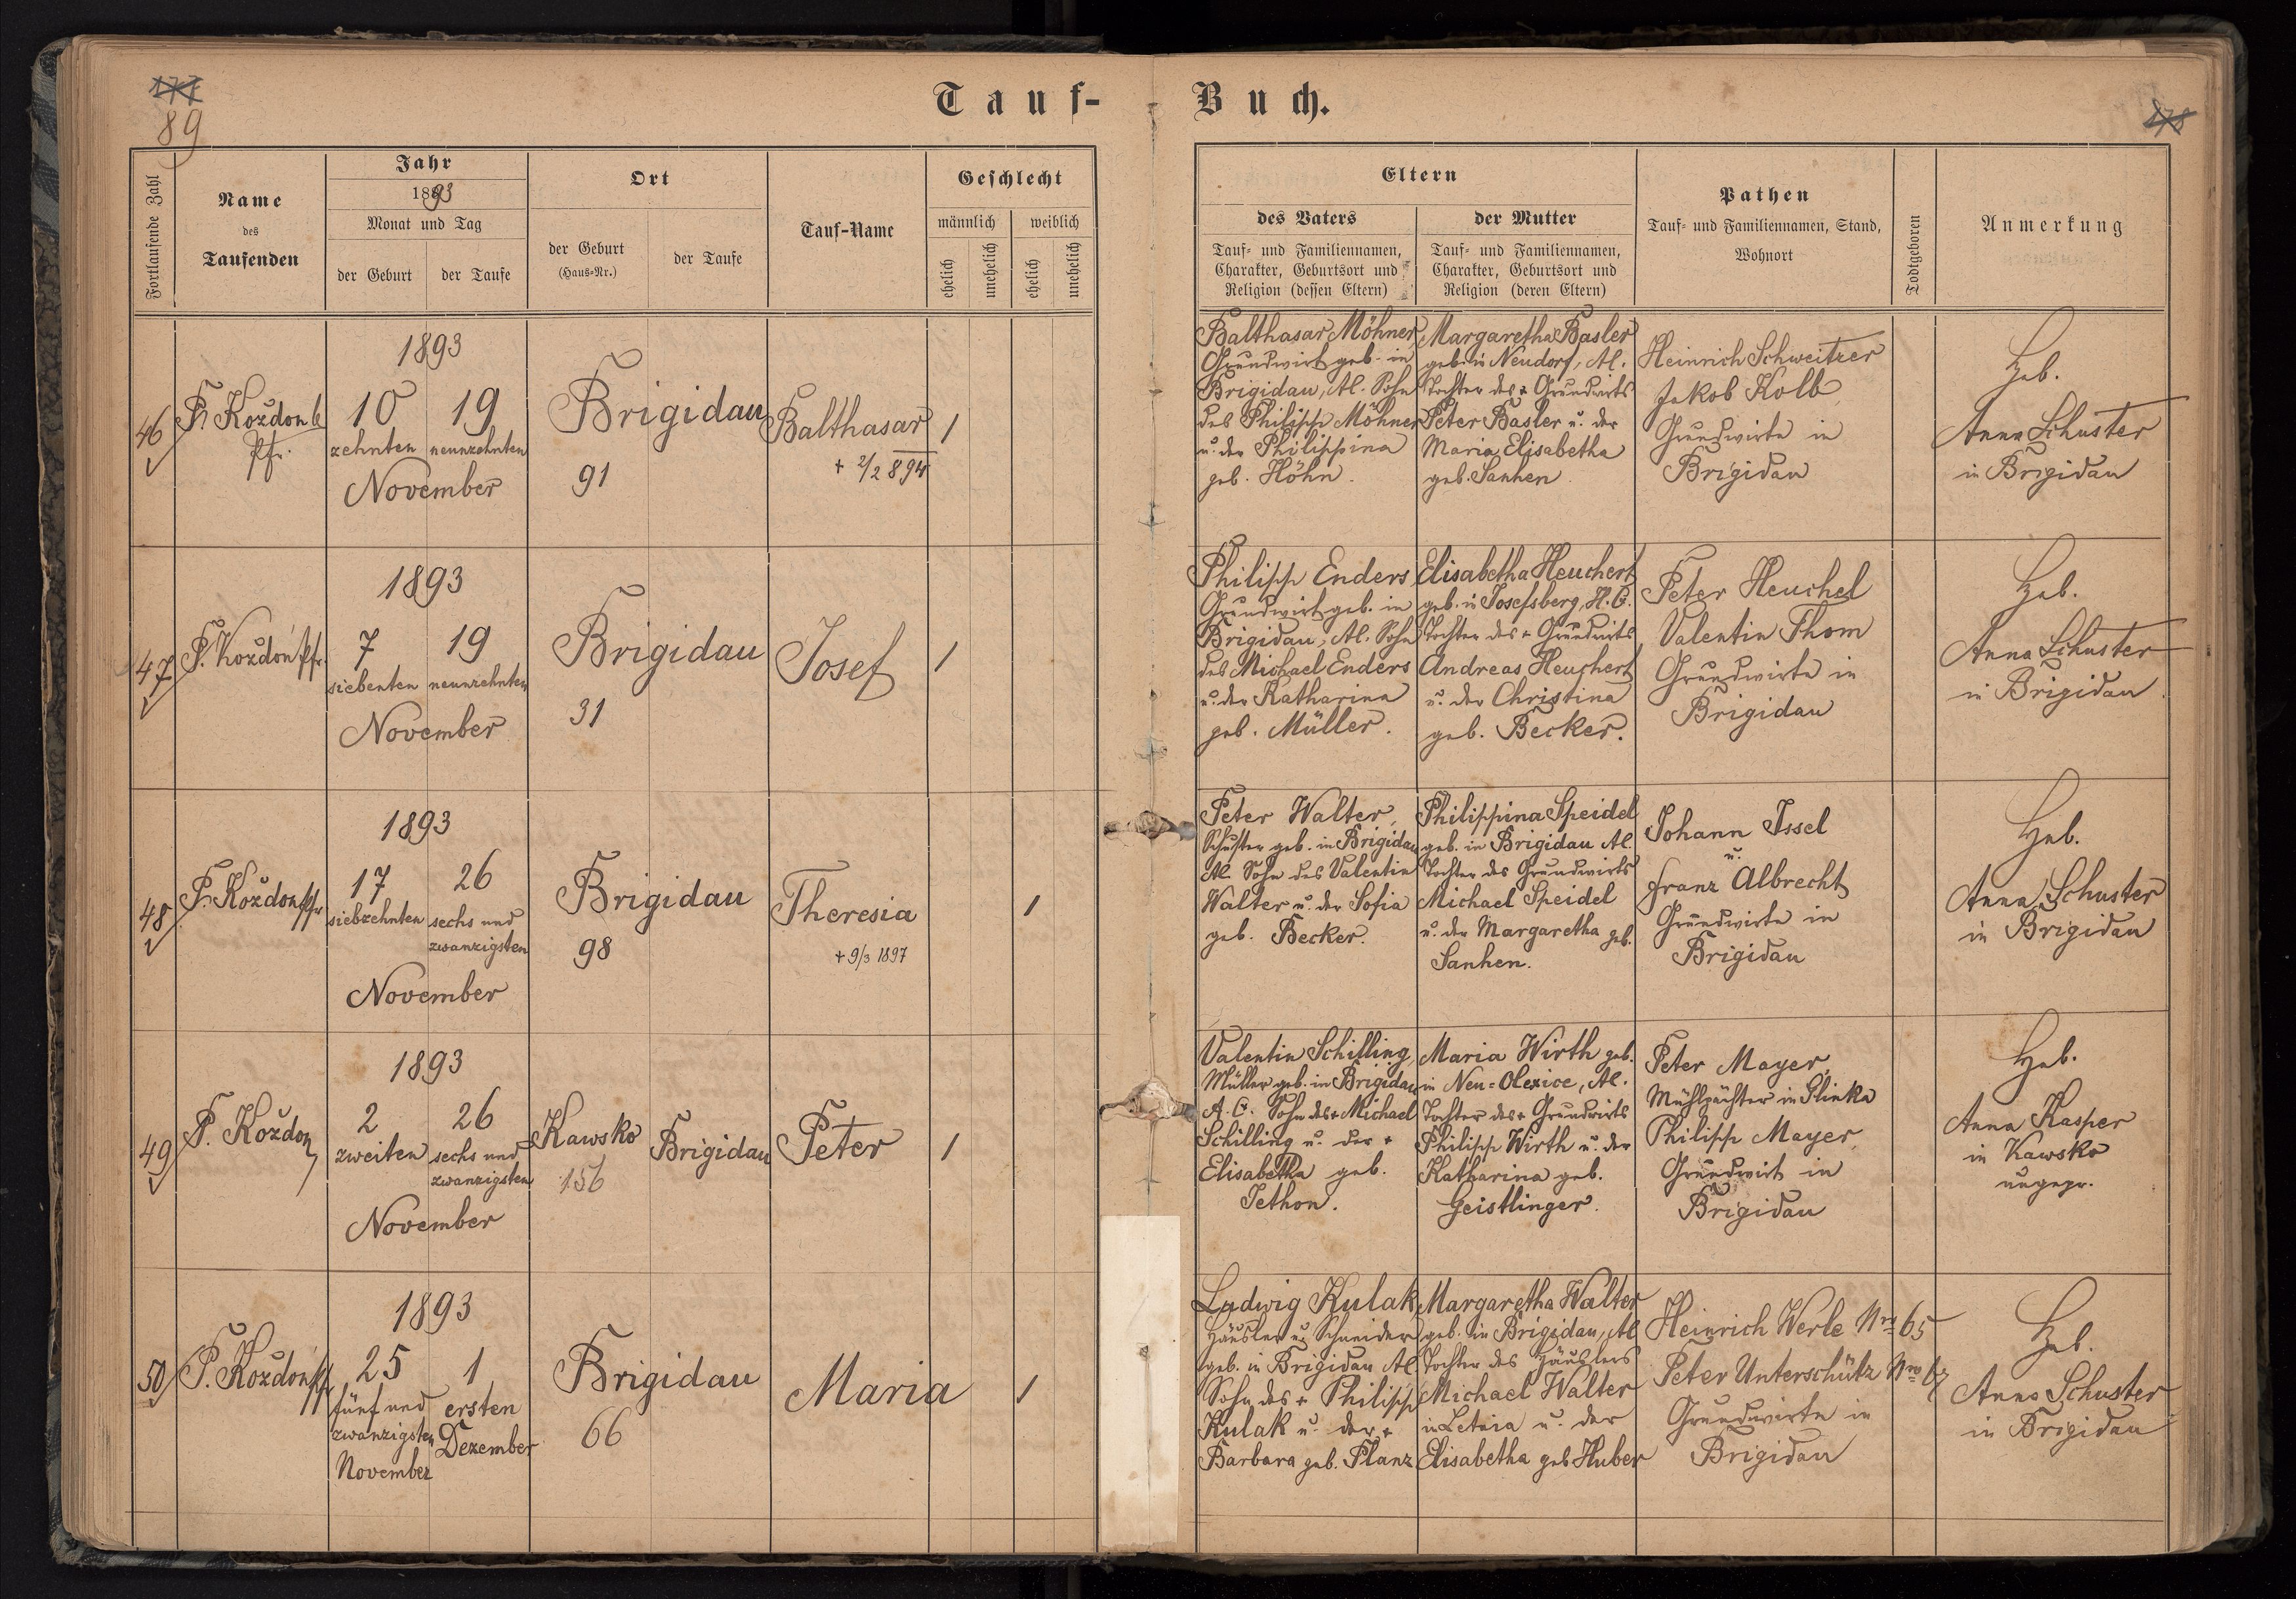 177
89
Tauf-
Buch.
178
Fortlaufende Zahl
Name
des
Taufenden
Jahr
1893
Monat und Tag
der Geburt
der Taufe
Ort
der Geburt
(Haus-Nr.)
der Taufe
Tauf-Name
Geschlecht
männlich
weiblich
ehelich
unehelich
ehelich
unehelich
Eltern
des Vaters
Tauf- und Familiennamen,
Charakter, Geburtsort und
Religion (dessen Eltern)
der Mutter
Tauf- und Familiennamen,
Charakter, Geburtsort und
Religion (deren Eltern)
Pathen
Tauf- und Familiennamen, Stand,
Wohnort
Todtgeboren
Anmerkung
46
P. Kozdon
Pfr.
1893
10
zehnten
19
neunzehnten
November
Brigidau
91
Balthasar
+ 2/2 894
1
Balthasar Möhner,
Grundwirt geb. in
Brigidau, Al. Sohn
des Philipp Möhner
u. der Philippina
geb. Höhn.
Margaretha Basler
geb. in Neudorf, Al.
Tochter des + Grundwirts
Peter Basler u. der
Maria Elisabetha
geb. Sanhen
Heinrich Schweitzer
Jakob Kolb,
Grundwirte in
Brigidau
Heb.
Anna Schuster
in Brigidau
47
P. Kozdon Pfr.
1893
7
siebenten
19
neunzehnten
November
Brigidau
31
Josef
1
Philipp Enders,
Grundwirt geb. in
Brigidau, Al. Sohn
des Michael Enders
u. der Katharina
geb. Müller.
Elisabetha Heuchert
geb. in Josefsberg, H.C.
Tochter des + Grundwirts
Andreas Heuchert
u. der Christina
geb. Becker.
Peter Heuchel
Valentin Thom
Grundwirte in
Brigidau
Heb.
Anna Schuster
in Brigidau
48
P. Kozdon Pfr
1893
17
siebzehnten
26
sechs und
zwanzigsten
November
Brigidau
98
Theresia
+ 9/3 1897
1
Peter Walter,
Schuster geb. in Brigidau
Al. Sohn des Valentin
Walter u. der Sofia
geb. Becker.
Philippina Speidel
geb. in Brigidau Al.
Tochter des Grundwirts
Michael Speidel
u. der Margaretha geb.
Sanhen.
Johann Issel
u.
Franz Albrecht
Grundwirte in
Brigidau
Heb.
Anna Schuster
in Brigidau
49
P. Kozdon
1893
2
zweiten
26
sechs und
zwanzigsten
November
Kawsko
156
Brigidau
Peter
1
Valentin Schilling,
Müller geb. in Brigidau
A.C. Sohn des + Michael
Schilling u. der +
Elisabetha geb.
Jethon.
Maria Wirth geb.
in Neu-Olexice, Al.
Tochter des + Grundwirts
Philipp Wirth u. der
Katharina geb.
Geistlinger.
Peter Mayer,
Mühlpächter in Glinka
Philipp Mayer,
Grundwirt in
Brigidau
Heb.
Anna Kasper
in Kawsko
ungepr.
50
P. Kozdon Pfr
1893
25
fünf und
zwanzigsten
November
1
ersten
Dezember
Brigidau
66
Maria
1
Ludwig Kulak,
Häusler u. Schneider
geb. in Brigidau Al.
Sohn des + Philipp
Kulak u. der +
Barbara geb. Planz
Margaretha Walter
geb. in Brigidau, Al.
Tochter des Häuslers
Michael Walter
in Letnia u. der
Elisabetha geb Huber
Heinrich Werle Nro 65
Peter Unterschütz Nro 67
Grundwirte in
Brigidau
Heb.
Anna Schuster
in Brigidau